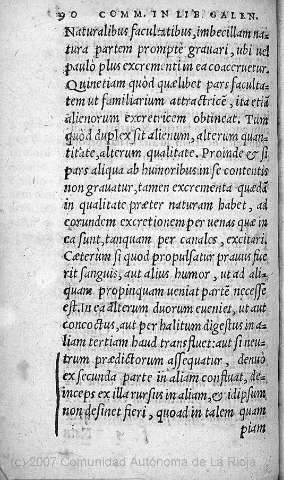 90 COMM. IN LIB. GALEN.
Naturalibus facultatibus, imbecillam na-
tura partem promptè grauari, ubi vel
paulò plus excrementi in ea coaceruetur.
Quinetiam quòd quælibet pars faculta-
tem ut familiarium attractricē, ita etiā
alienorum excretricem obtineat. Tum
quòd duplex sit alienum, alterum quan-
titate, alterum qualitate. Proinde & si
pars aliqua ab humoribus in se contentis
non grauatur, tamen excrementa quædā
in qualitate præter naturam habet, ad
eorundem excretionem per venas quæ in
ea sunt, tanquam per canales, excitari.
Cæterum si quod propulsatur prauus fue
rit sanguis, aut alius humor, ut ad ali-
quam propinquam veniat partē necesse
est. In ea alterum duorum eueniet, ut aut
concoctus, aut per halitum digestus in a-
liam tertiam haud transfluet: aut si neu-
trum prædictorum assequatur, denuò
ex secunda parte in aliam confluat, de-
inceps ex illa rursus in aliam, & idipsum
non desinet fieri, quoad in talem quam
piam
(c) 2007 Comunidad Autónoma de La Rioja